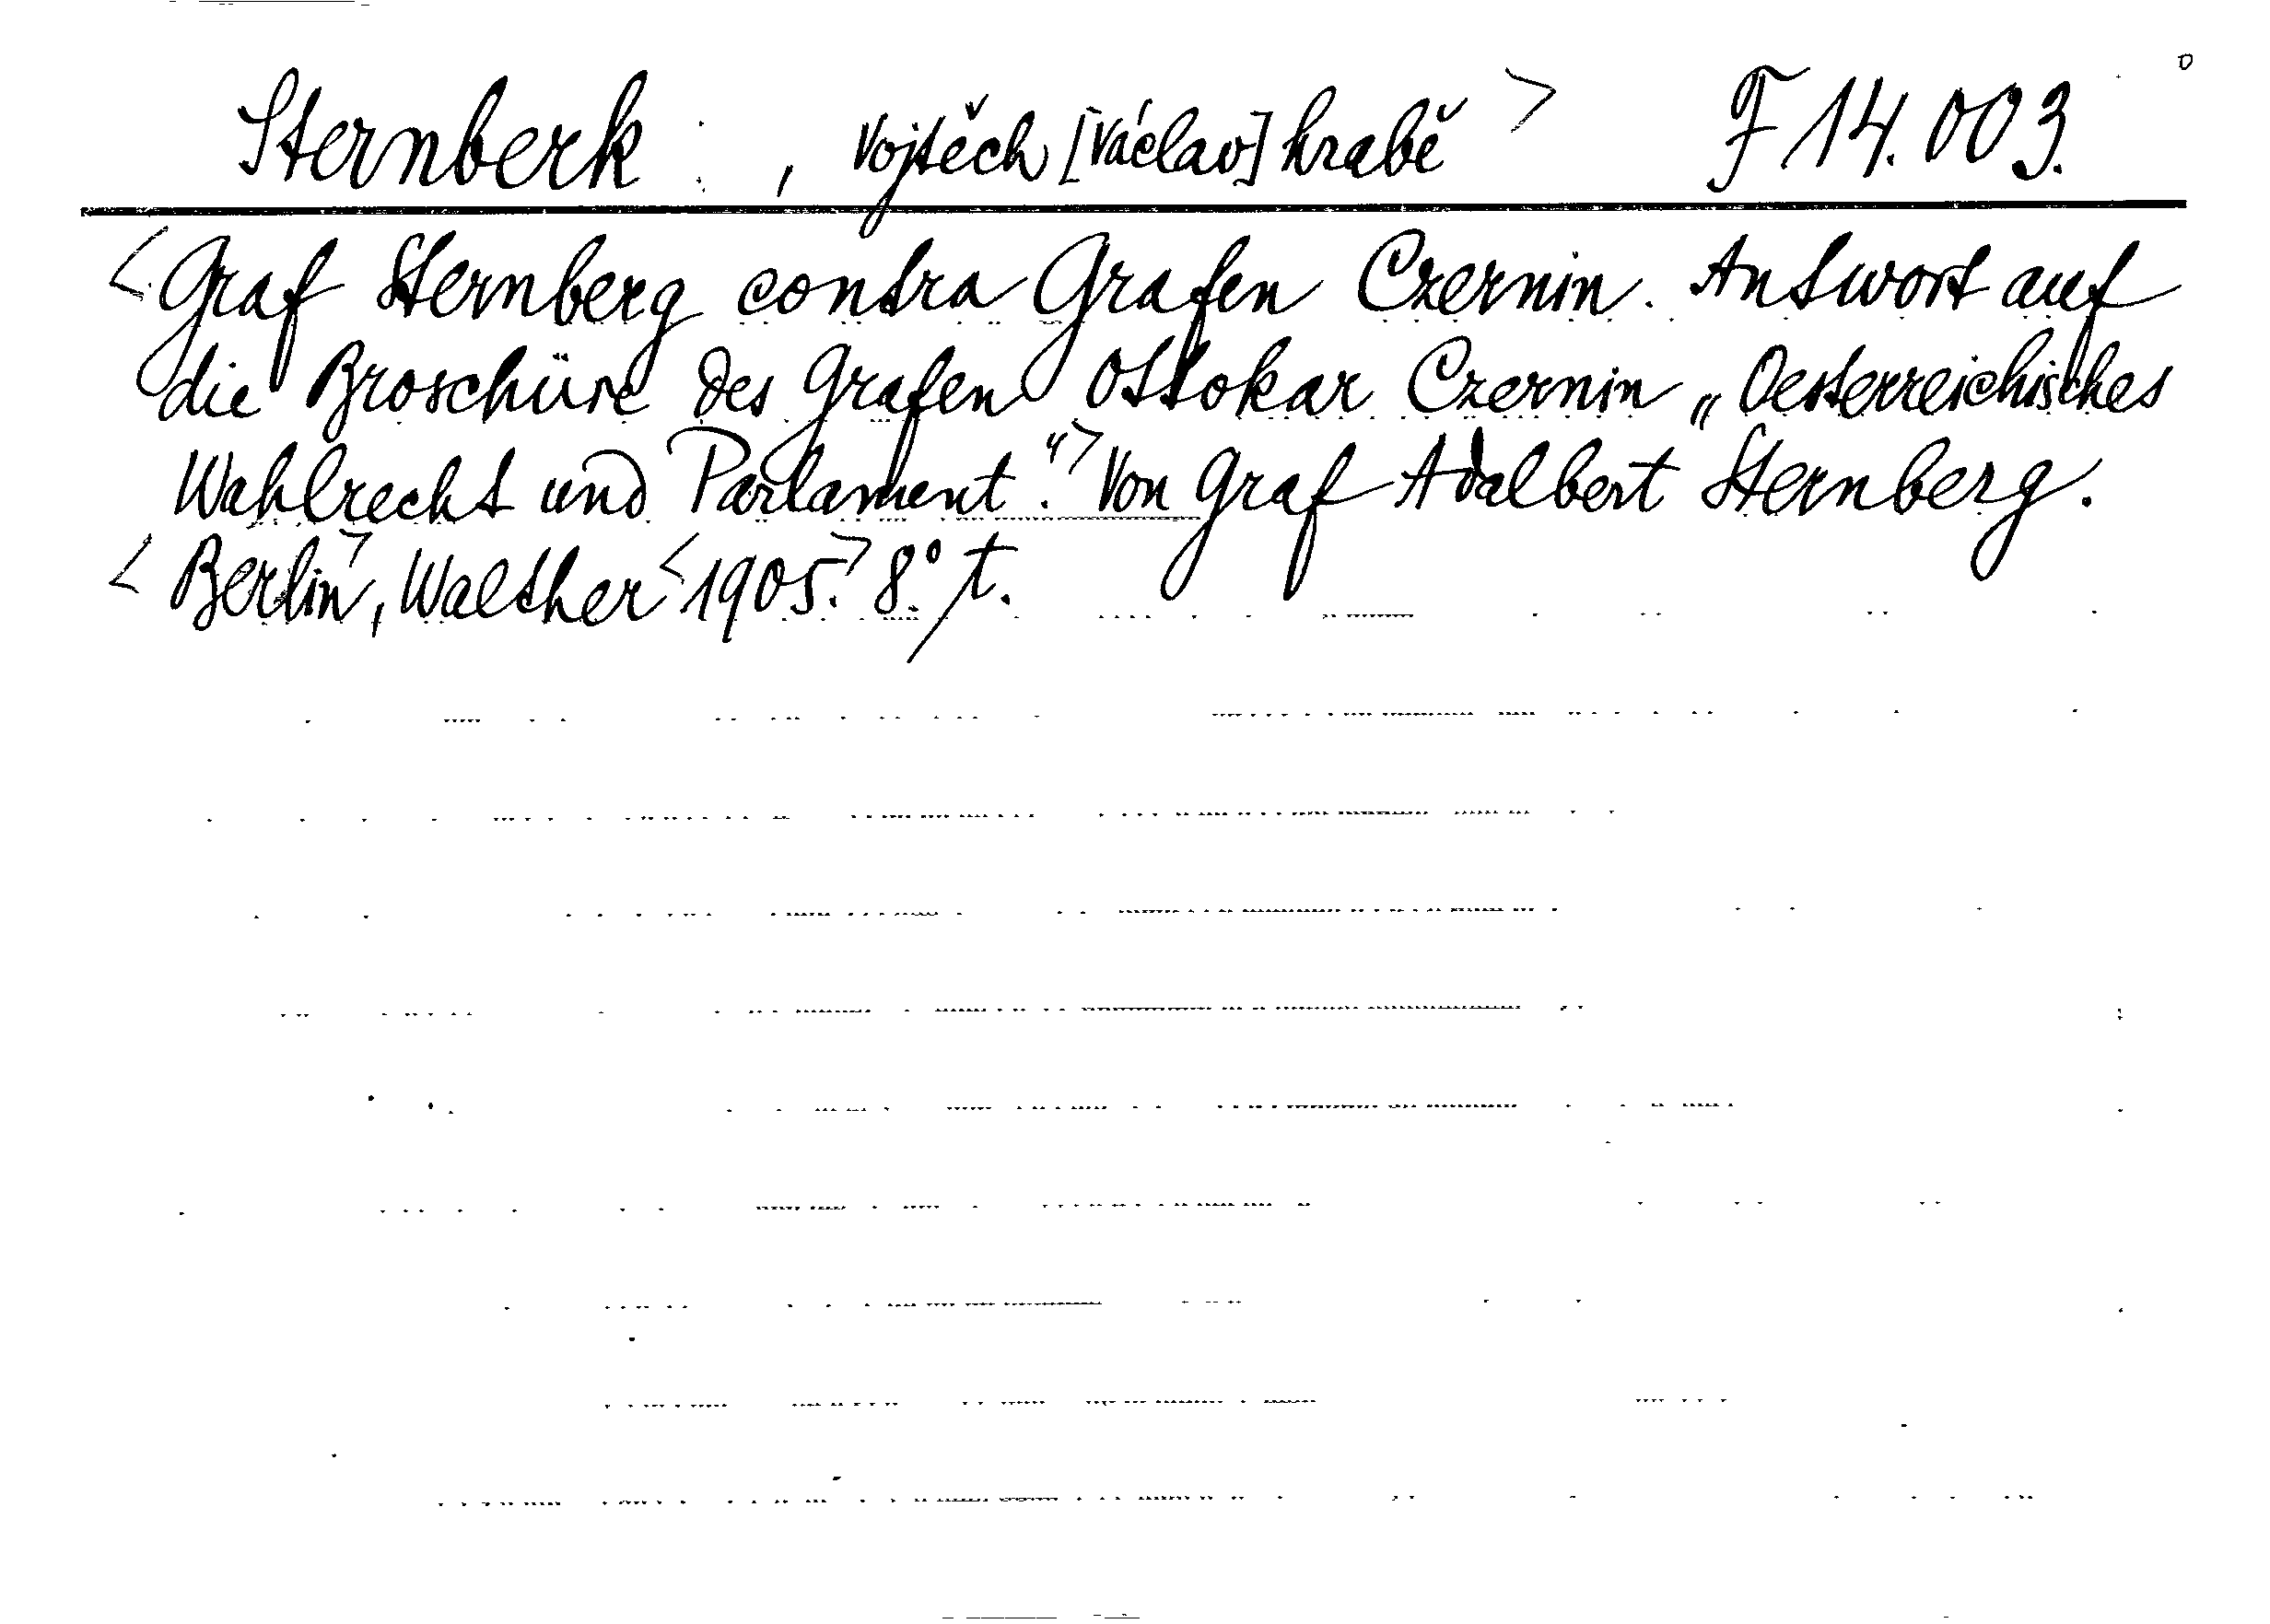 Sternberk , Vojtěch [Václav] hrabě > F 14.003.
<Graf Sternberg contra Grafen Czernin. Antwort auf
die Broschüre des Grafen Ottokar Czernin „Oesterreichisches
Wahlrecht und Parlament“.> Von Graf Adalbert Sternberg.
<Berlin>, Walther <1905.> 8° t.